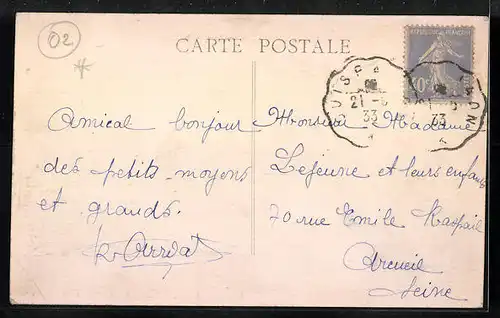 02
CARTE POSTALE
REPUBLIQUE FRANÇAISE
21
33
33
Amical bonjour
des petits, moyens
et grands.
Monsieur Madame
Lejeune et leurs enfants
70 rue Emile Raspail
Arcueil
Seine